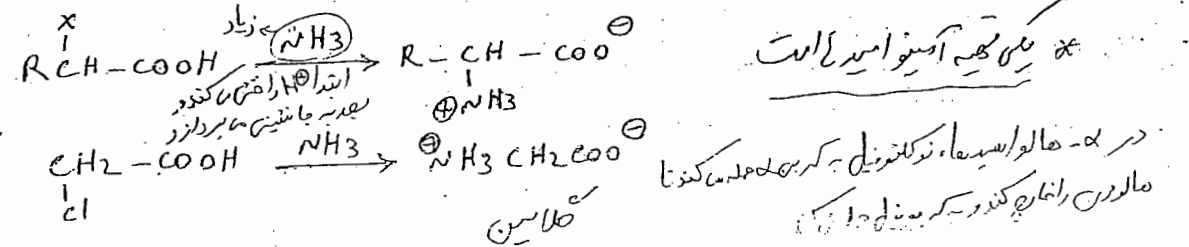 * یکی تهیه آمینو اسیدها است
R CH(X) – COOH —NH3 زیاد→ R – CH(⊕NH3) – COO⊖
ابتدا H⊕ را خنثی می‌کند و
بعد به جانشینی می‌پردازد
CH2(Cl) – COOH —NH3→ ⊕NH3 CH2COO⊖
گلایسین
در α- هالو اسیدها، نوکلئوفیل به کربن α حمله می‌کند تا
هالوژن را خارج کند و به کربونیل